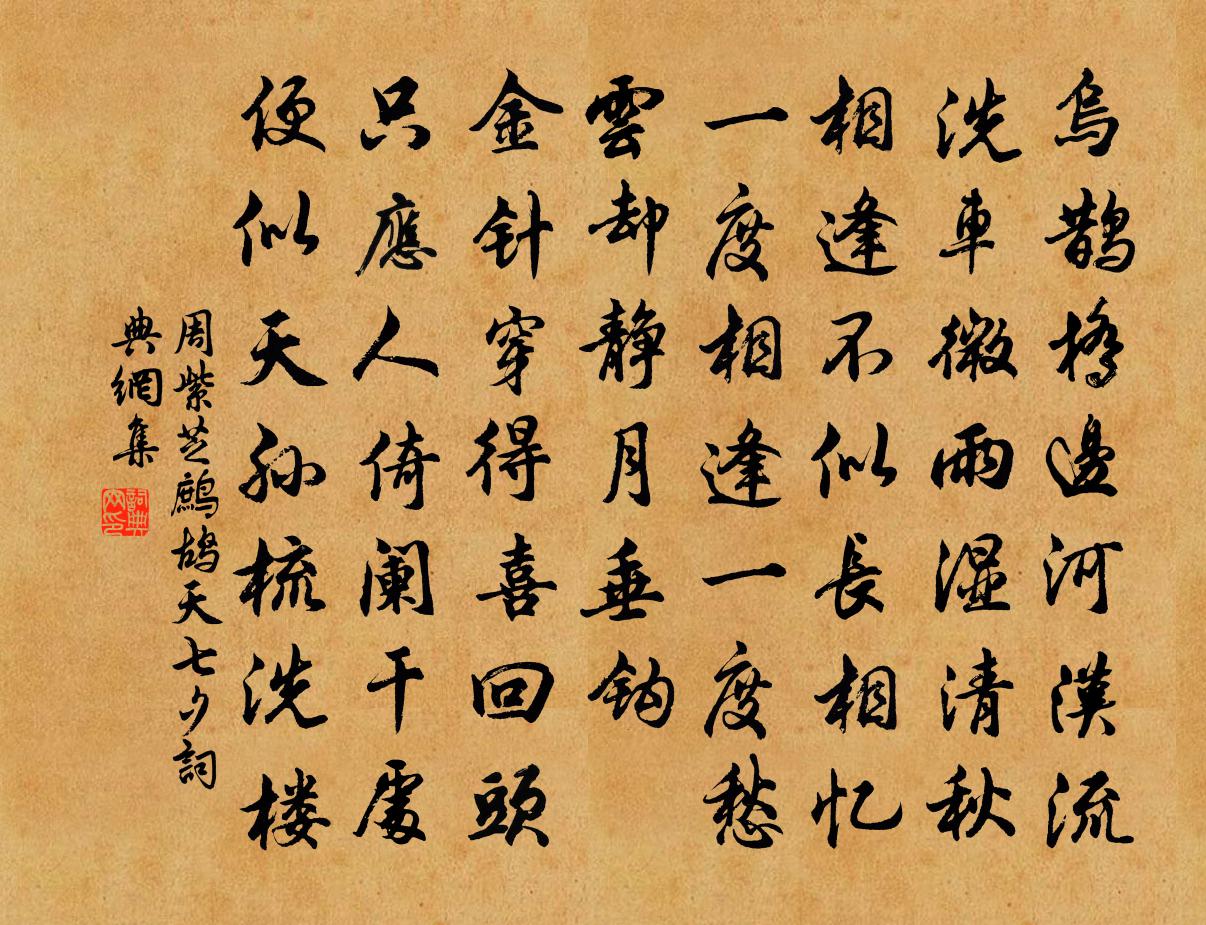 烏鹊橋邊河漢流
洗車微雨濕清秋
相逢不似長相忆
一度相逢一度愁
雲却静月垂鈎
金针穿得喜回頭
只應人倚阑干處
便似天孙梳洗楼
周紫芝鷓鴣天七夕詞
典網集
詞典網印